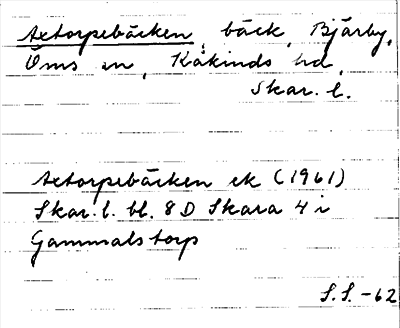 Axtorpebäcken, bäck, Bjärby,
Öms sn, Kåkinds hd,
Skar. l.
Axtorpebäcken ek (1961)
Skar. l. bl. 8D Skara 4 i
Gammalstorp
S.S. -62